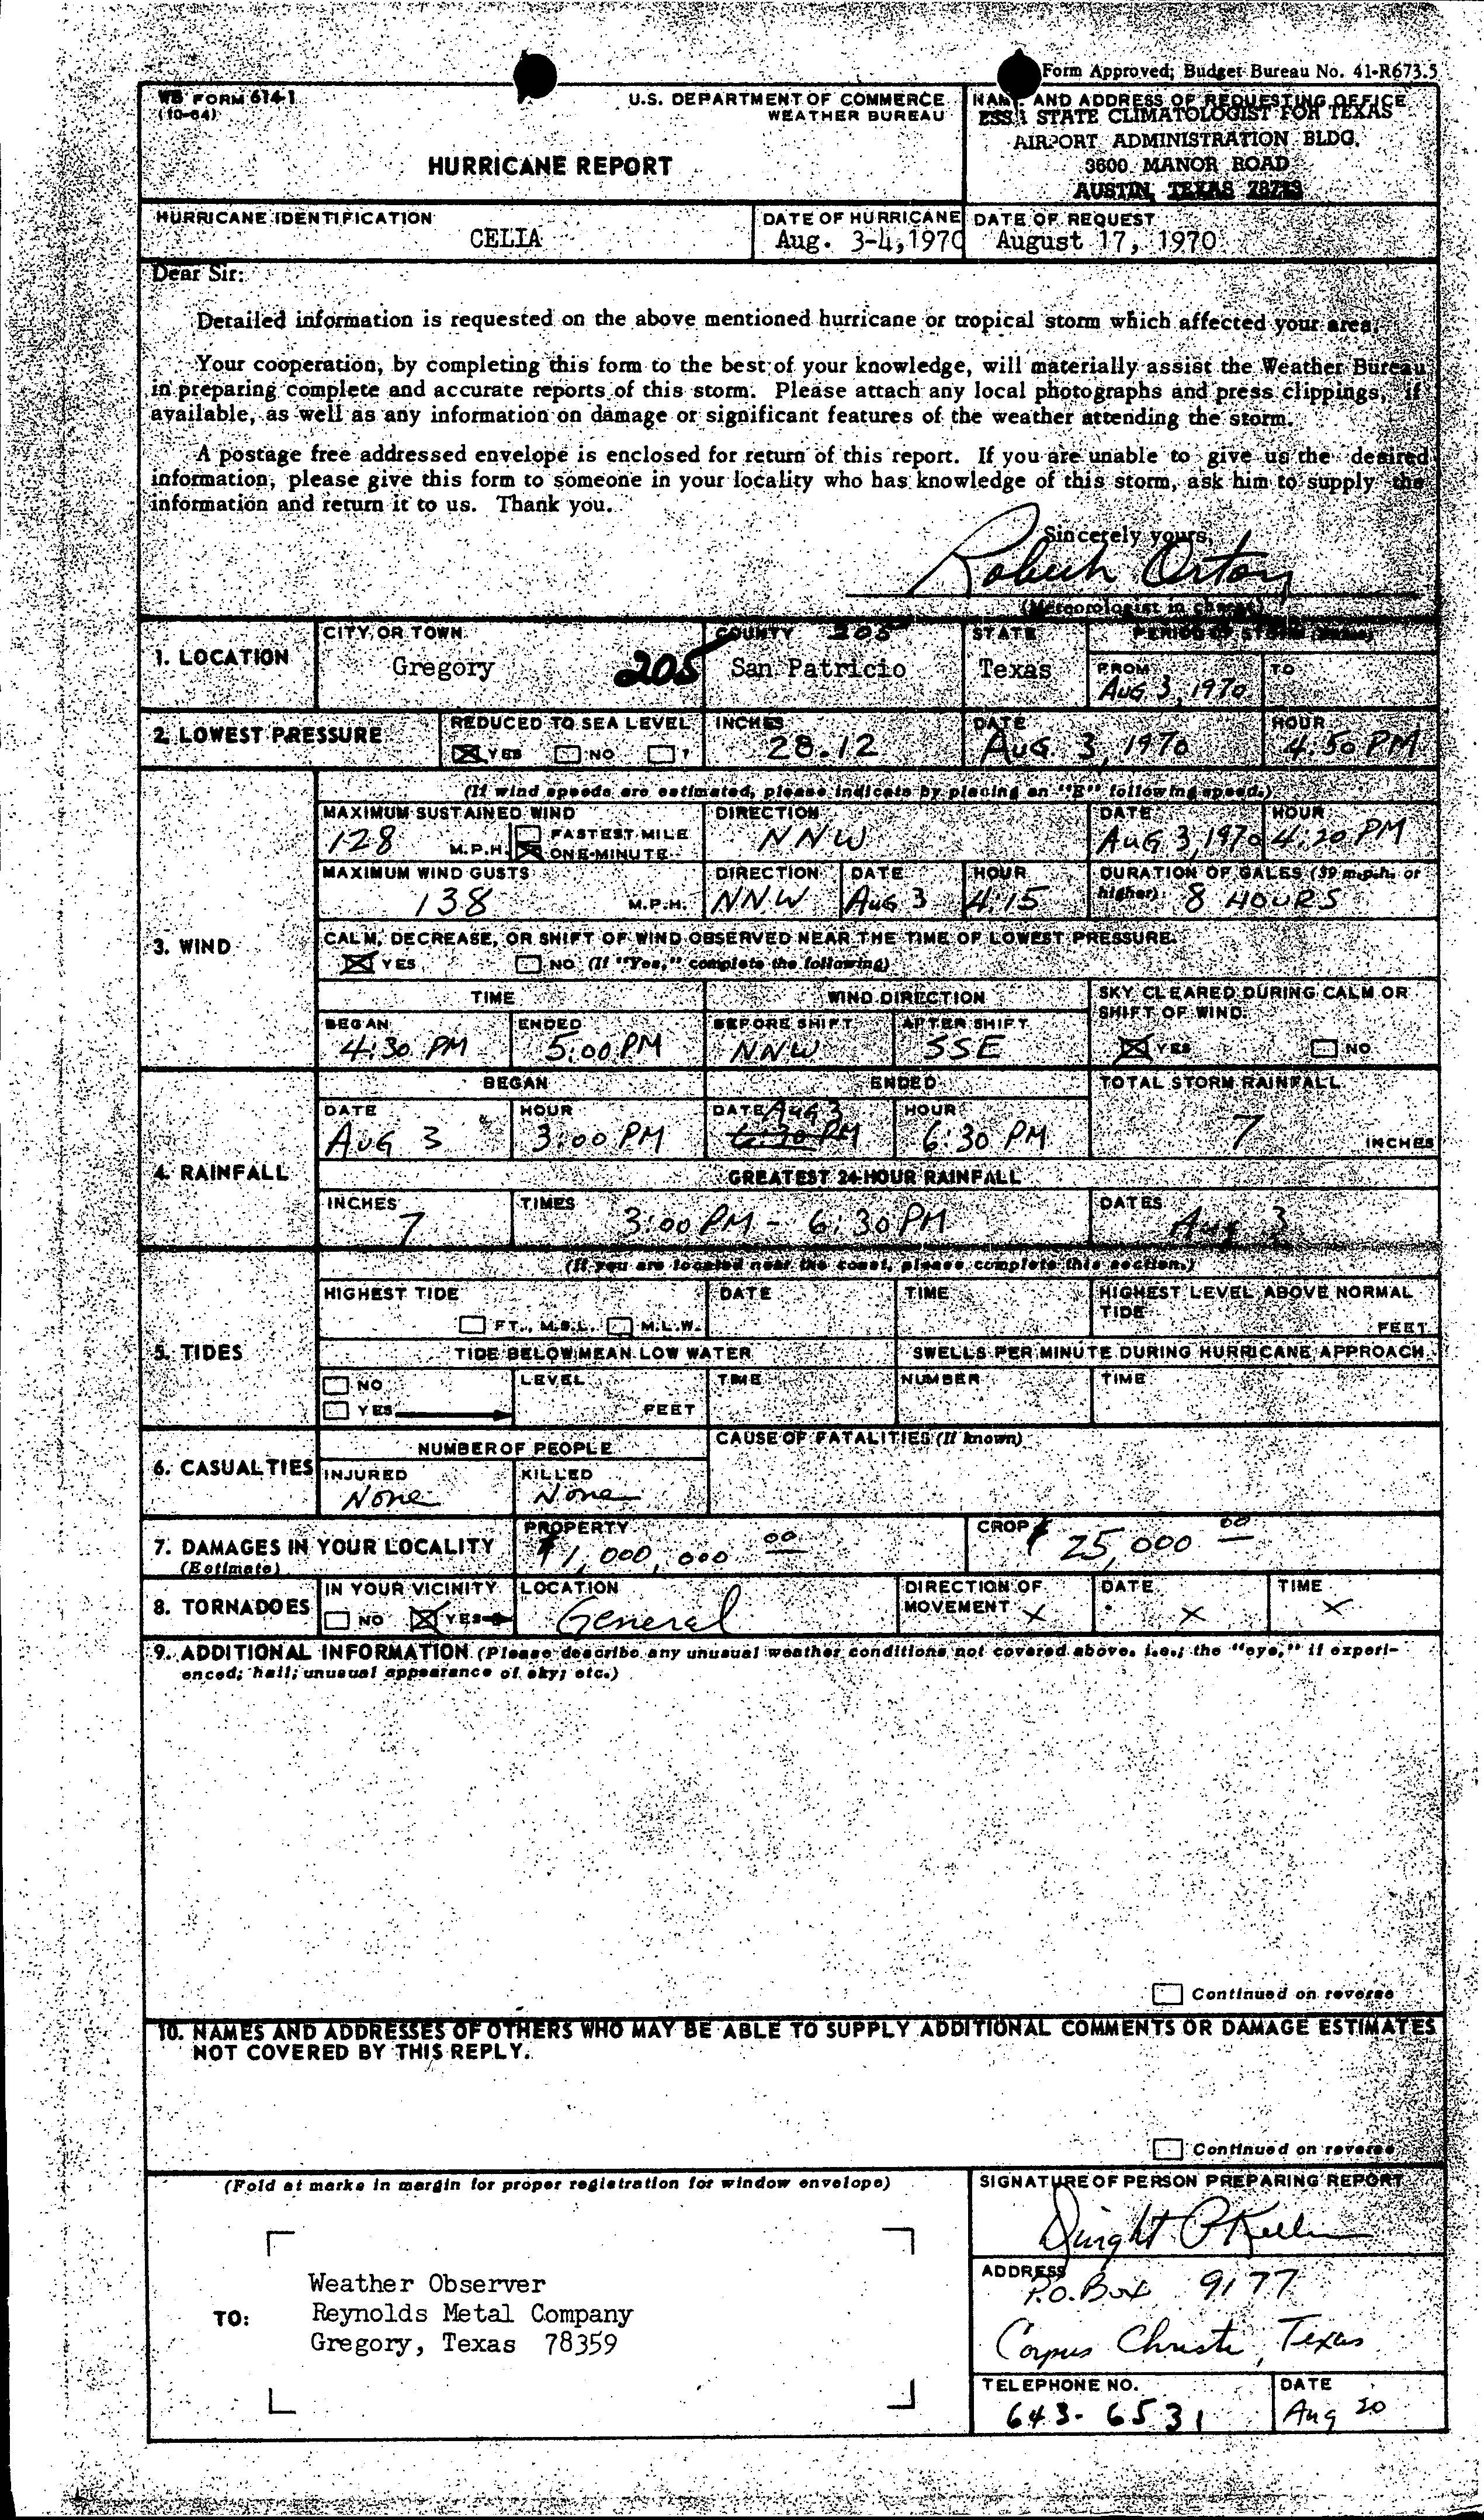 Form Approved; Budget Bureau No. 41-R673.5
WB FORM 614-1
(10-64)
U.S. DEPARTMENT OF COMMERCE
WEATHER BUREAU
HURRICANE REPORT
NAME AND ADDRESS OF REQUESTING OFFICE
ESSA STATE CLIMATOLOGIST FOR TEXAS
AIRPORT ADMINISTRATION BLDG.
3600 MANOR ROAD
AUSTIN, TEXAS 78723
HURRICANE IDENTIFICATION
CELIA
DATE OF HURRICANE
Aug. 3-4,1970
DATE OF REQUEST
August 17, 1970
Dear Sir:
Detailed information is requested on the above mentioned hurricane or tropical storm which affected your area.
Your cooperation, by completing this form to the best of your knowledge, will materially assist the Weather Bureau
in preparing complete and accurate reports of this storm. Please attach any local photographs and press clippings, if
available, as well as any information on damage or significant features of the weather attending the storm.
A postage free addressed envelope is enclosed for return of this report. If you are unable to give us the desired
information, please give this form to someone in your locality who has knowledge of this storm, ask him to supply the
information and return it to us. Thank you.
Sincerely yours,
Robert Orton
(Meteorologist in charge)
1. LOCATION
CITY OR TOWN
Gregory
205
COUNTY 205
San Patricio
STATE
Texas
PERIOD OF STORM (Dates)
FROM
Aug 3, 1970
TO
2. LOWEST PRESSURE
REDUCED TO SEA LEVEL
YES NO ?
INCHES
28.12
DATE
AUG. 3, 1970
HOUR
4:50 PM
3. WIND
(If wind speeds are estimated, please indicate by placing an "E" following speed.)
MAXIMUM SUSTAINED WIND
128 M.P.H.
FASTEST MILE
ONE-MINUTE
DIRECTION
NNW
DATE
AUG 3, 1970
HOUR
4:20 PM
MAXIMUM WIND GUSTS
138 M.P.H.
DIRECTION
NNW
DATE
Aug 3
HOUR
4:15
DURATION OF GALES (39 m.p.h. or
higher)
8 HOURS
CALM, DECREASE, OR SHIFT OF WIND OBSERVED NEAR THE TIME OF LOWEST PRESSURE.
YES NO (If "Yes," complete the following)
TIME
WIND DIRECTION
SKY CLEARED DURING CALM OR
SHIFT OF WIND.
BEGAN
4:30 PM
ENDED
5:00 PM
BEFORE SHIFT
NNW
AFTER SHIFT
SSE
YES NO
4. RAINFALL
BEGAN
ENDED
TOTAL STORM RAINFALL
7 INCHES
DATE
AUG 3
HOUR
3:00 PM
DATE Aug 3
6:30 PM
HOUR
6:30 PM
GREATEST 24-HOUR RAINFALL
INCHES
7
TIMES
3:00 PM - 6:30 PM
DATES
Aug 3
5. TIDES
(If you are located near the coast, please complete this section.)
HIGHEST TIDE
FT., M.S.L. M.L.W.
DATE
TIME
HIGHEST LEVEL ABOVE NORMAL
TIDE
FEET
TIDE BELOW MEAN LOW WATER
SWELLS PER MINUTE DURING HURRICANE APPROACH
NO
YES
LEVEL
FEET
TIME
NUMBER
TIME
6. CASUALTIES
NUMBER OF PEOPLE
INJURED
None
KILLED
None
CAUSE OF FATALITIES (If known)
7. DAMAGES IN YOUR LOCALITY
(Estimate)
PROPERTY
$1,000,000 00
CROP
$ 25,000 00
8. TORNADOES
IN YOUR VICINITY
NO YES
LOCATION
General
DIRECTION OF
MOVEMENT X
DATE
X
TIME
X
9. ADDITIONAL INFORMATION (Please describe any unusual weather conditions not covered above. i.e.; the "eye," if experi-
enced; hail; unusual appearance of sky; etc.)
Continued on reverse
10. NAMES AND ADDRESSES OF OTHERS WHO MAY BE ABLE TO SUPPLY ADDITIONAL COMMENTS OR DAMAGE ESTIMATES
NOT COVERED BY THIS REPLY.
Continued on reverse
(Fold at marks in margin for proper registration for window envelope)
TO:
Weather Observer
Reynolds Metal Company
Gregory, Texas 78359
SIGNATURE OF PERSON PREPARING REPORT
Dwight P Keller
ADDRESS
P.O. Box 9177
Corpus Christi, Texas
TELEPHONE NO.
643-6531
DATE
Aug 20